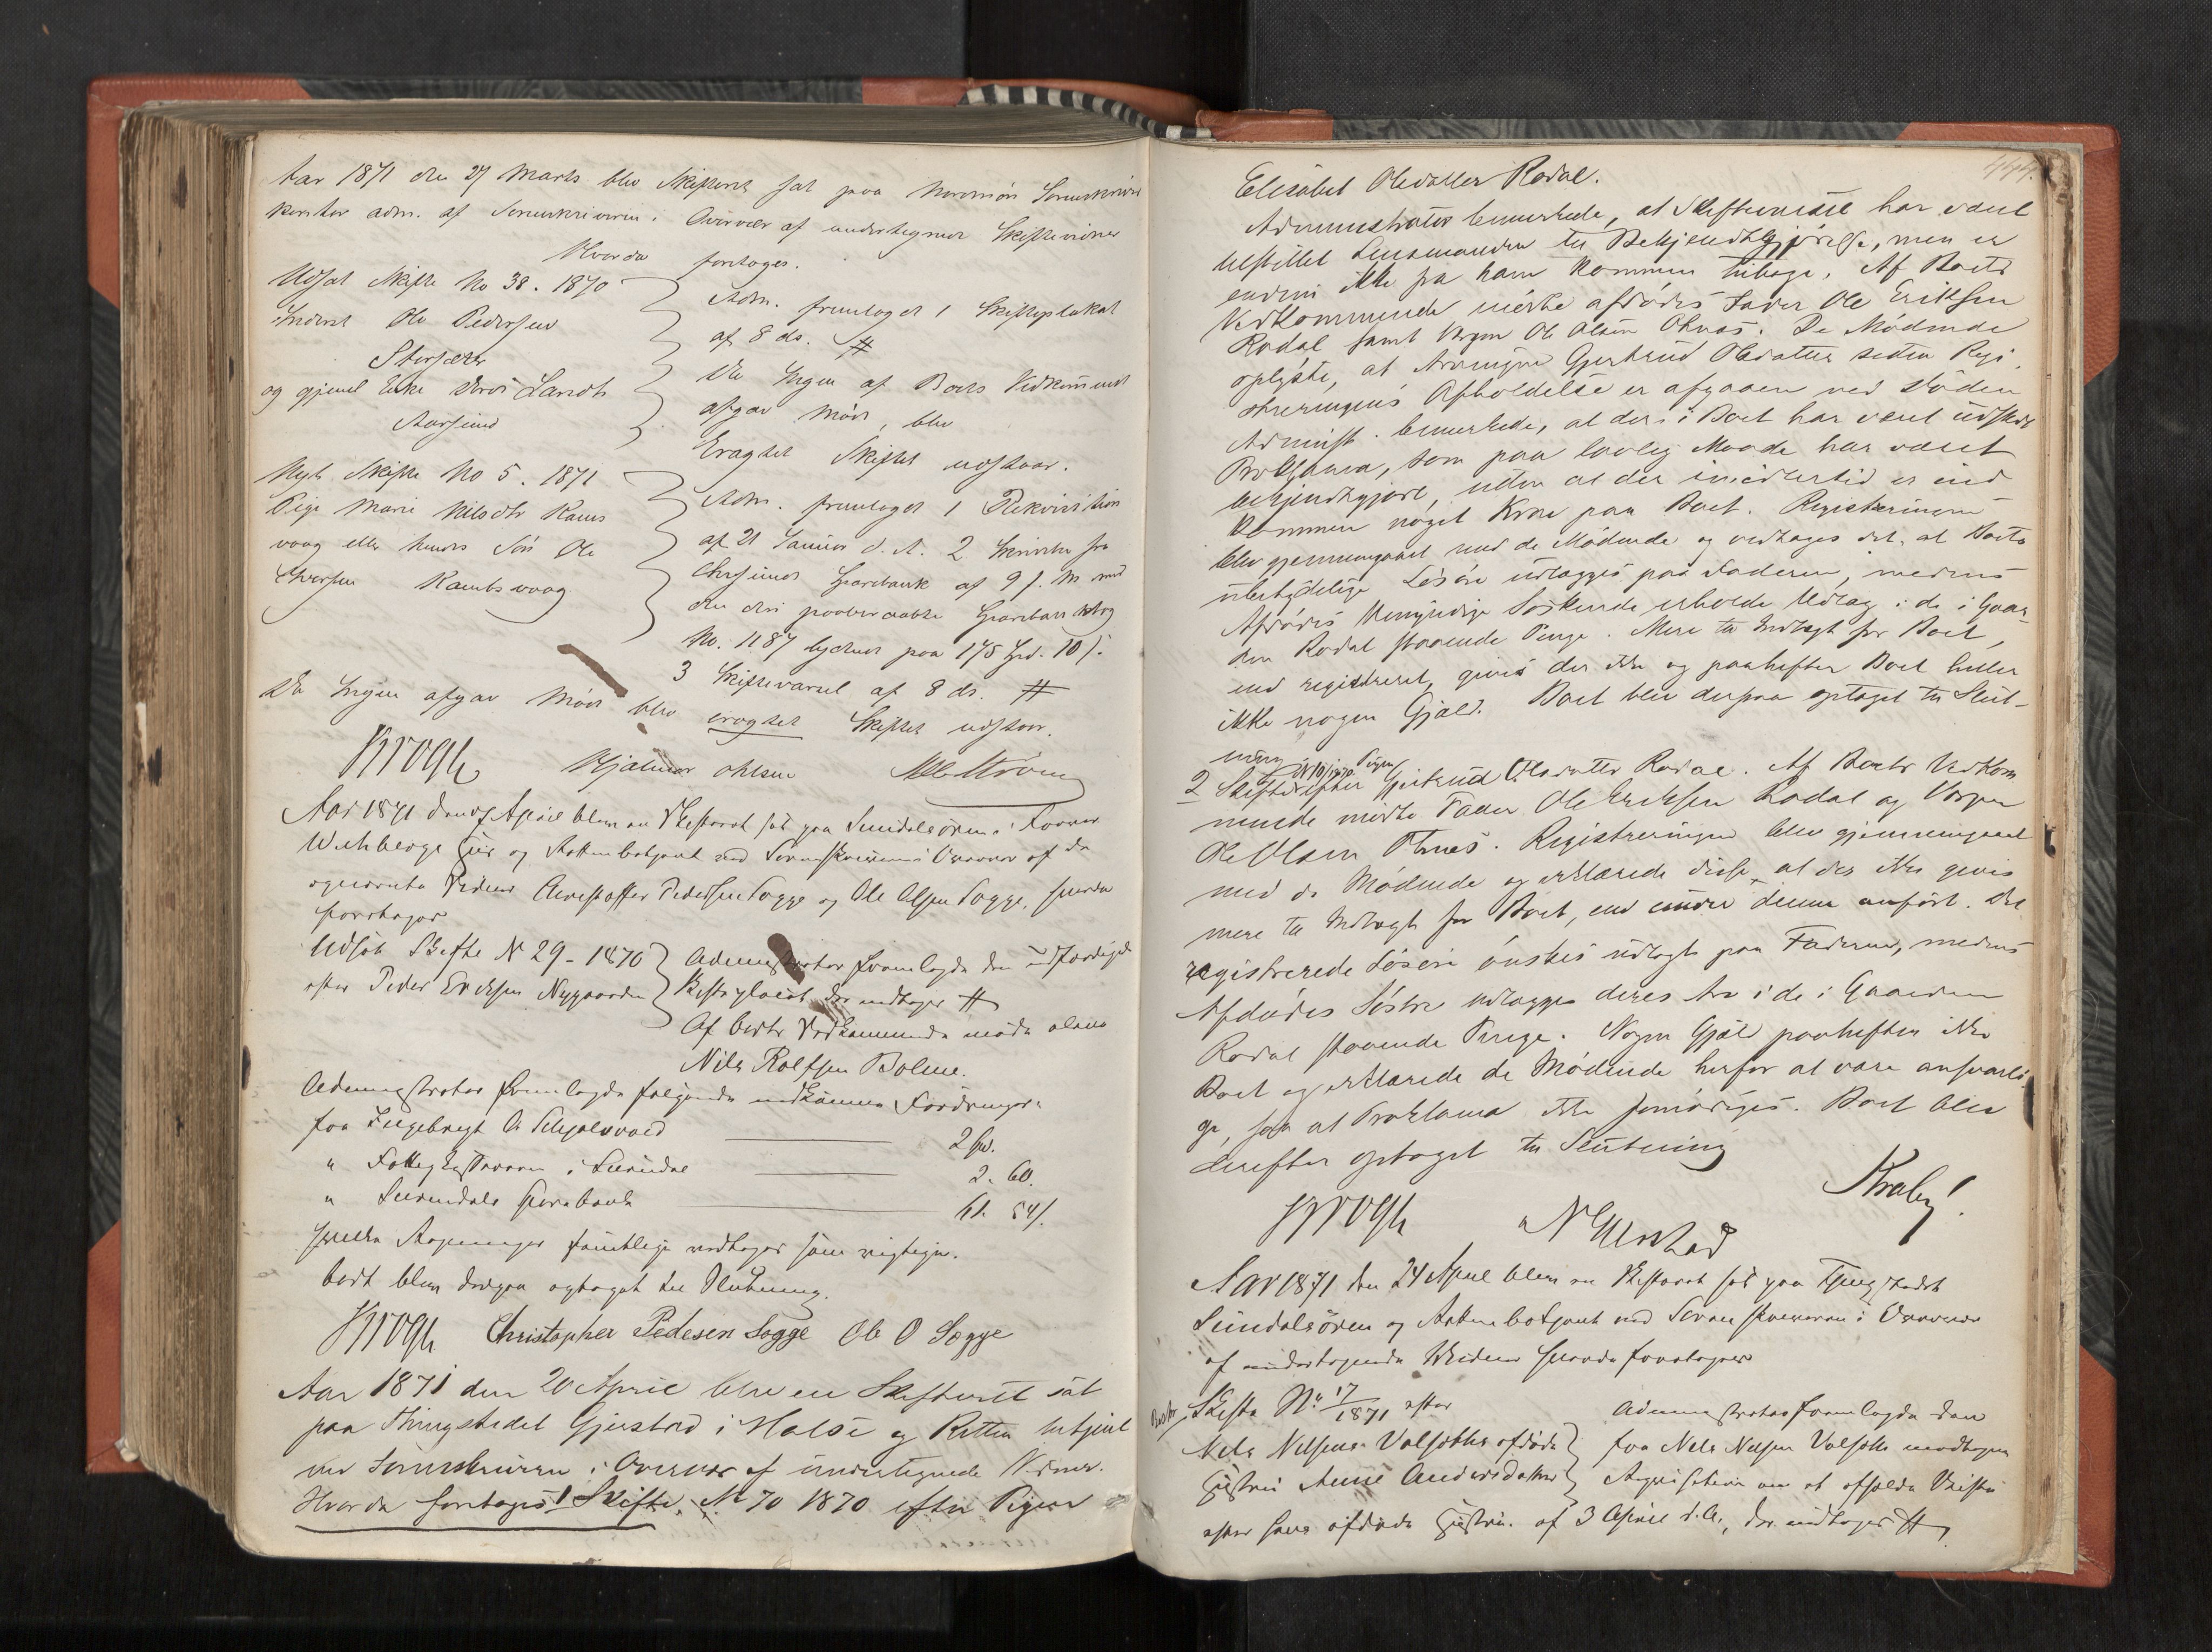 Aar 1871 den 27 Marts blev Skifteret sat paa Nordmør Sorenskriver
kontor adm. af Sorenskriveren i Overvær af undertegnede Skiftevidner
Hvorda foretoges.
Udsat Skifte No 38. 1870
Inderst Ole Pedersen
og gjenl. Enke
Adm. fremlagde 1 Skifteplakat
af 8 ds. #
Da Ingen af Boets Vedkommende
afgav Møde, blev
Eragtet Skiftet udstaar.
Nyt Skifte No 5. 1871
Pige Marie Nilsdtr Rams
vaag eller hendes Søn Ole
Iversen Rambsvaag
Adm. fremlagde 1 Rekvisition
af 21 Januar d. A. 2 Skrivelse fra
Chrsunds Sparebank af 9 f. M med
den deri paaberaabte Sparebankbog
No. 1187 lydende paa 175 Spd. 10 /-
3 Skiftevarsel af 8 ds. #
Da Ingen afgav Møde blev eragtet Skiftet udstaar.
Krogh Hjalmar Ohlsen
Aar 1871 den 7 April blev en Skifteret sat paa Sundalsøren i Toarer
Wuhbergs Huus og Retten betjent ved Sorenskriveren i Overvær af de
opnævnte Vidner Christoffer Pedersen Sogge og Ole Olsen Sogge, hvorda
foretoges
Udsat Skifte N 29 - 1870
efter Peder Ericksen Nygaarden
Administrator fremlagde den udfærdigede
Skifteplacat der indtages #
Af Boets Vedkommende mødte alene
Nils Rolfsen Bolme.
Administrator fremlagde følgende indkomne Fordringer
fra Ingebrigt A Skjølsvold 2 Spd.
" Fattigkassereren i Surendal 2. 60.
" Surendals Sparebank 61. 54/.
hvilke Regninger samtlige vedtoges som rigtige.
Boet blev derpaa optaget til Slutning.
Krogh Christopher Pedesen Sogge Ole O Sogge
Aar 1871 den 20 April blev en Skifteret sat
paa Thingstedet Gjerstad i Halse og Retten betjent
ved Sorenskriveren i Overvær af undertegnede Vidner.
Hvorda foretoges 1 Skifte No 70 1870 efter Pigen
444.
Elisabet Olsdatter Rodal.
Administrator bemærkede, at Skiftevarsel har været
tilstillet Lensmanden til Bekjendtgjørelse, men er
endnu ikke fra ham kommen tilbage. Af Boets
Vedkommende mødte afdødes Fader Ole Eriksen
Rodal samt Vergen Ole Olsen Otnæs. De Mødende
oplyste, at Arvingen Gjertrud Olsdatter siden Regi-
streringens Afholdelse er afgaaen ved Døden
Administ. bemærkede, at der i Boet har været udstedt
Proklama, som paa lovlig Maade har været
bekjendtgjort, uden at der imidlertid er ind
kommen noget Krav paa Boet. Registreringen
blev gjennemgaaet med de Mødende og vedtoges det, at Boets
ubetydelige Løsøre udlægges paa Faderen, medens
Afdødes Umyndige Søskende erholde Udlæg i de i Gaar-
den Rodal staaende Penge. Mere til Indtægt for Boet,
end registreret, gives der ikke og paahefter Boet heller
ikke nogen Gjæld. Boet blev derpaa optaget til Slut-
ning
2 Skifte efter Pigen Gjertrud Olsdatter Rodal. Af Boets Vedkom
mende mødte Fader Ole Eriksen Rodal og Vergen
Ole Olsen Otnæs. Registreringen blev gjennemgaaet
med de Mødende og erklærede disse, at der ikke gives
mere til Indtægt for Boet, end under denne anført. Det
registrerede Løsøre ønskes udlagt paa Faderen, medens
Afdødes Søstre udlægges deres Arv i de i Gaarden
Rodal staaende Penge. Nogen Gjæld paahefter ikke
Boet og erklærede de Mødende herfor at være ansvarli-
ge, saa at Proklama ikke fornødiges. Boet blev
derefter optaget til Slutning
Kraby!
Krogh
Aar 1871 den 24 April blev en Skifteret sat paa Thingstedet
Sundalsøren og Retten betjent ved Sorenskriveren i Overvær
af undertegnede Vidner hvorda foretoges
Skifte No 17/1871 efter
Nils Nilsens Volsethes afdøde
Hustru Anne Andersdatter
Administrator fremlagde den
fra Nils Nilsen Volseth modtagne
Reqvisition om at afholde Skifte
efter hans afdøde Hustru. af 3 April d. A., der indtages #